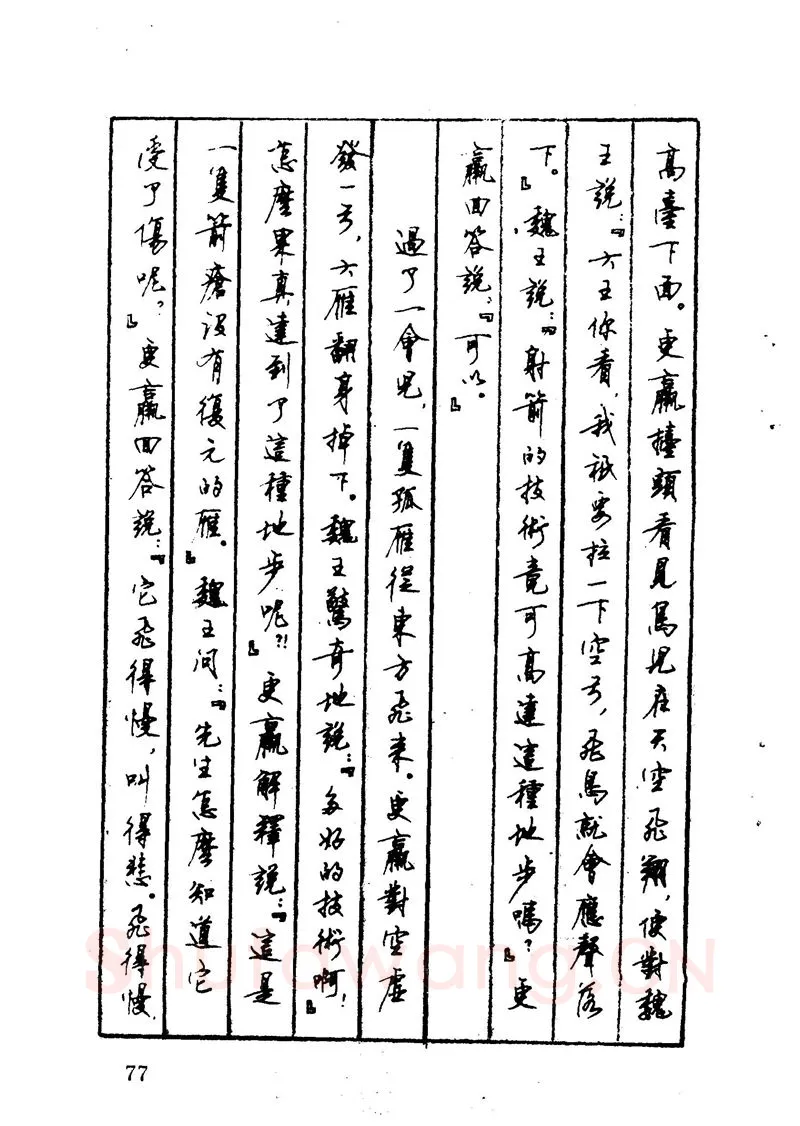 高臺下面。更羸擡頭看見鳥兒在天空飛翔，便對魏
王說：『大王你看，我衹要拉一下空弓，飛鳥就會應聲落
下。』魏王說：『射箭的技術竟可高達這種地步嗎？』更
羸回答說：『可以。』
過了一會兒，一隻孤雁從東方飛來。更羸對空虛
發一弓，大雁翻身掉下。魏王驚奇地說：『多好的技術啊！
怎麼果真達到了這種地步呢？！』更羸解釋說：『這是
一隻箭瘡沒有復元的雁。』魏王问：『先生怎麼知道它
受了傷呢？』更羸回答說：『它飛得慢，叫得悲。飛得慢，
77
Shufawang.CN